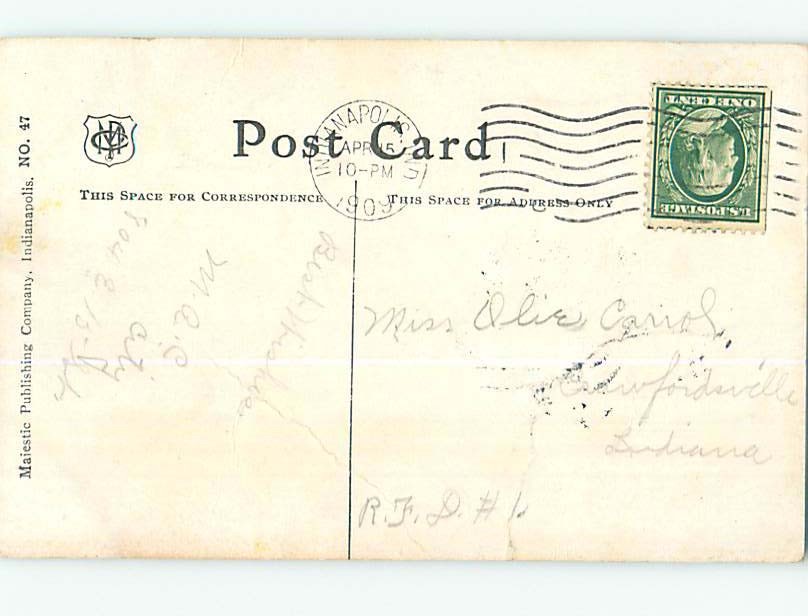 Majestic Publishing Company, Indianapolis. NO. 47
Post Card
INDIANAPOLIS, IND
APR 15
10-PM
1909
THIS SPACE FOR CORRESPONDENCE
THIS SPACE FOR ADDRESS ONLY
U.S. POSTAGE
ONE CENT
Best Wishes
M. C. C.
804 E 13th
City
Miss Olie Carrol,
Crawfordsville
Indiana
R.F.D. #1.